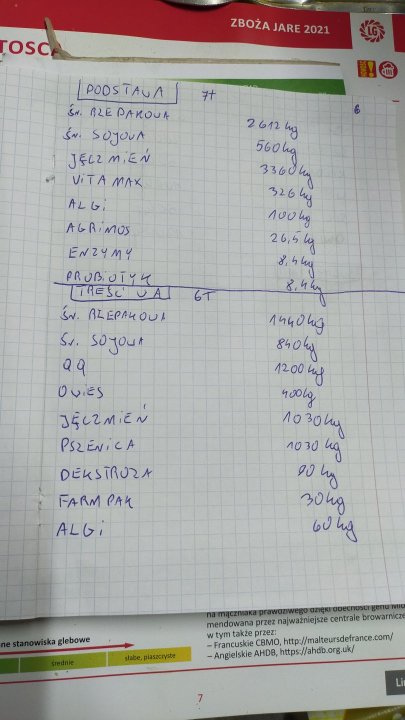 ZBOŻA JARE 2021
LG
TOŚC
PODSTAWA 7t
ŚR. RZEPAKOWA 2612 kg
ŚR. SOJOWA 560 kg
JĘCZMIEŃ 3360 kg
VITAMAX 326 kg
ALGI 100 kg
AGRIMOS 26,5 kg
ENZYMY 8,4 kg
PROBIOTYK 8,4 kg
TREŚCIWA 6T
ŚR. RZEPAKOWA 1440 kg
ŚR. SOJOWA 840 kg
QQ 1200 kg
OWIES 400 kg
JĘCZMIEŃ 1030 kg
PSZENICA 1030 kg
DEKSTROZA 90 kg
FARMPAK 30 kg
ALGI 60 kg
na mączniaka prawdziwego dzięki obecności genu Mlo
mendowana przez najważniejsze centrale browarnicze
w tym także przez:
– Francuskie CBMO, http://malteursdefrance.com/
– Angielskie AHDB, https://ahdb.org.uk/
ne stanowiska glebowe
średnie
słabe, piaszczyste
Li
7